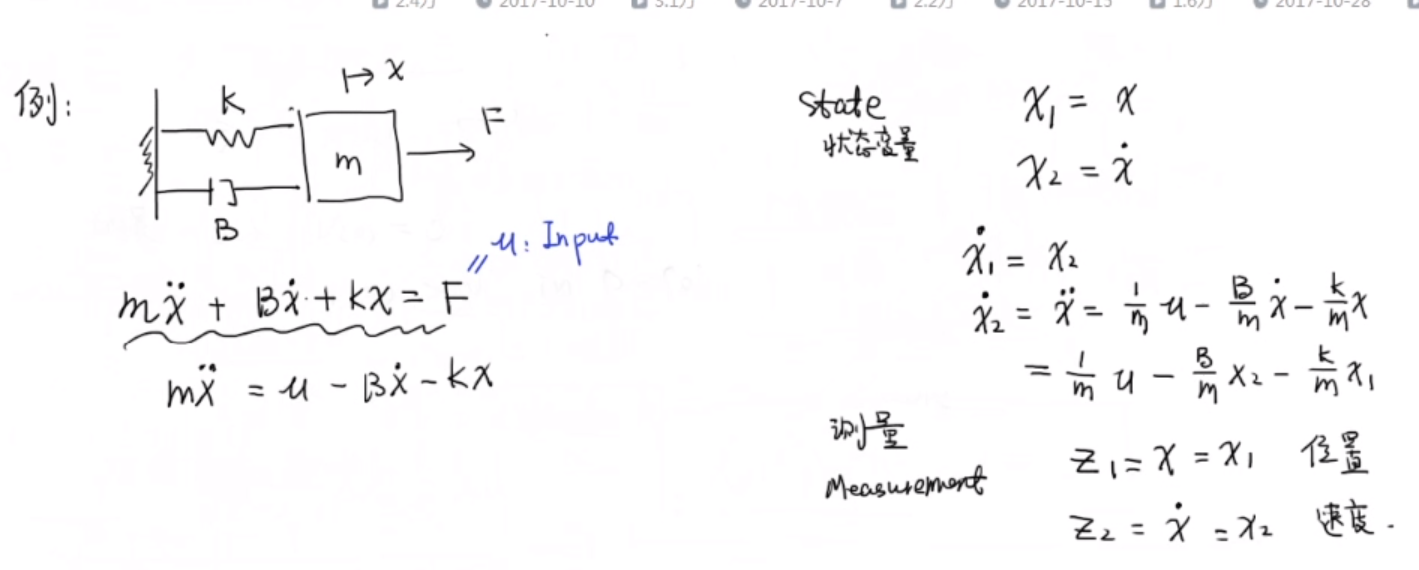 2.4万 2017-10-10 3.1万 2017-10-7 2.2万 2017-10-15 1.6万 2017-10-28
例:
x
k
F
m
B
u: Input
mẍ + Bẋ + kx = F
mẍ = u - Bẋ - kx
State
状态变量
x₁ = x
x₂ = ẋ
ẋ₁ = x₂
ẋ₂ = ẍ = 1/m u - B/m ẋ - k/m x
= 1/m u - B/m x₂ - k/m x₁
测量
Measurement
z₁ = x = x₁ 位置
z₂ = ẋ = x₂ 速度.